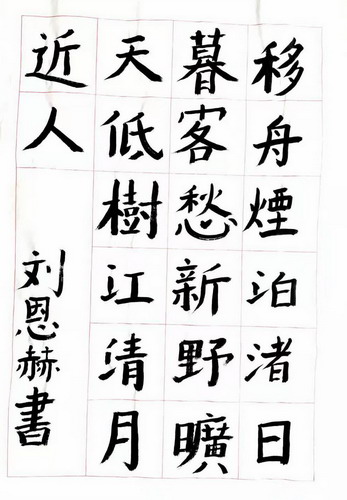 移舟煙泊渚日
暮客愁新野曠
天低樹江清月
近人
刘恩赫書